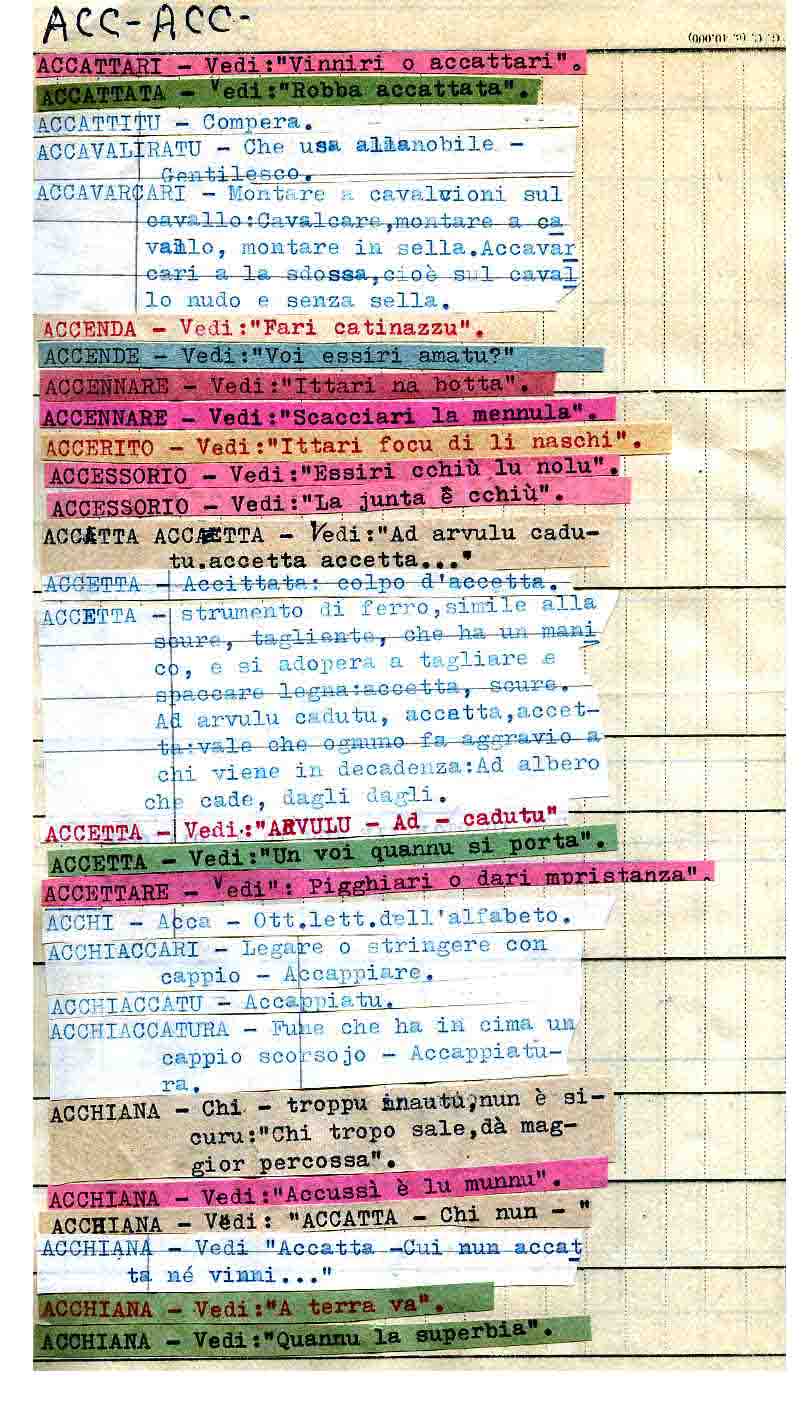 ACC-ACC-
ACCATTARI - Vedi:"Vinniri o accattari".
ACCATTATA - Vedi:"Robba accattata".
ACCATTITU - Compera.
ACCAVALIRATU - Che usa allanobile -
Gentilesco.
ACCAVARCARI - Montare a cavalcioni sul
cavallo:Cavalcare,montare a ca
vallo, montare in sella.Accavar
cari a la sdossa,cioè sul caval
lo nudo e senza sella.
ACCENDA - Vedi:"Fari catinazzu".
ACCENDE - Vedi:"Voi essiri amatu?"
ACCENNARE - Vedi:"Ittari na botta".
ACCENNARE - Vedi:"Scacciari la mennula".
ACCERITO - Vedi:"Ittari focu di li naschi".
ACCESSORIO - Vedi:"Essiri cchiù lu nolu".
ACCESSORIO - Vedi:"La junta è cchiù".
ACCATTA ACCAETTA - Vedi:"Ad arvulu cadu-
tu.accetta accetta..."
ACCETTA - Accittata: colpo d'accetta.
ACCETTA - strumento di ferro,simile alla
scure, tagliente, che ha un mani
co, e si adopera a tagliare e
spaccare legna:accetta, scure.
Ad arvulu cadutu, accatta,accet-
ta:vale che ognuno fa aggravio a
chi viene in decadenza:Ad albero
che cade, dagli dagli.
ACCETTA - Vedi:"ARVULU - Ad - cadutu"
ACCETTA - Vedi:"Un voi quannu si porta".
ACCETTARE - Vedi": Pigghiari o dari mpristanza".
ACCHI - Acca - Ott.lett.dell'alfabeto.
ACCHIACCARI - Legare o stringere con
cappio - Accappiare.
ACCHIACCATU - Accappiatu.
ACCHIACCATURA - Fune che ha in cima un
cappio scorsojo - Accappiatu-
ra.
ACCHIANA - Chi - troppu nautu,nun è si-
curu:"Chi tropo sale,dà mag-
gior percossa".
ACCHIANA - Vedi:"Accussì è lu munnu".
ACCHIANA - Vedi: "ACCATTA - Chi nun - "
ACCHIANA - Vedi "Accatta -Cui nun accat
ta né vinni..."
ACCHIANA - Vedi:"A terra va".
ACCHIANA - Vedi:"Quannu la superbia".